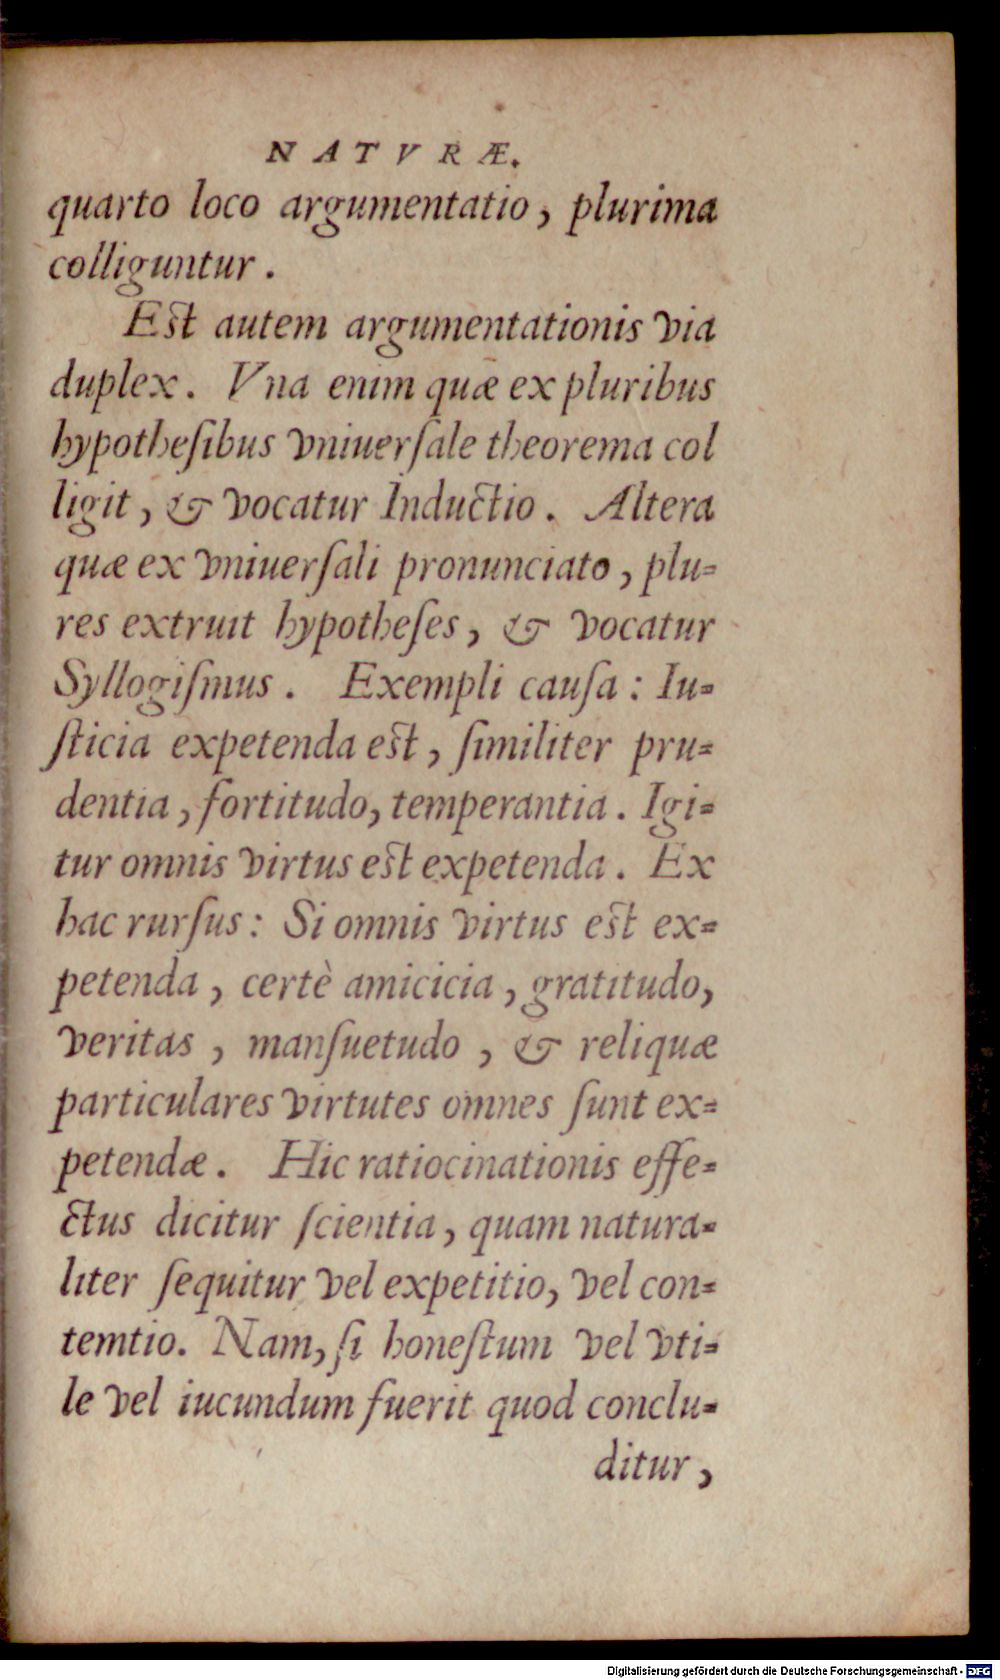 NATVRÆ.
quarto loco argumentatio, plurima
colliguntur.
Est autem argumentationis via
duplex. Vna enim quæ ex pluribus
hypothesibus vniuersale theorema col
ligit, & vocatur Inductio. Altera
quæ ex vniuersali pronunciato, plu-
res extruit hypotheses, & vocatur
Syllogismus. Exempli causa: Iu-
sticia expetenda est, similiter pru-
dentia, fortitudo, temperantia. Igi-
tur omnis virtus est expetenda. Ex
hac rursus: Si omnis virtus est ex-
petenda, certè amicicia, gratitudo,
veritas, mansuetudo, & reliquæ
particulares virtutes omnes sunt ex-
petendæ. Hic ratiocinationis effe-
ctus dicitur scientia, quam natura-
liter sequitur vel expetitio, vel con-
temtio. Nam, si honestum vel vti-
le vel iucundum fuerit quod conclu-
ditur,
Digitalisierung gefördert durch die Deutsche Forschungsgemeinschaft - DFG